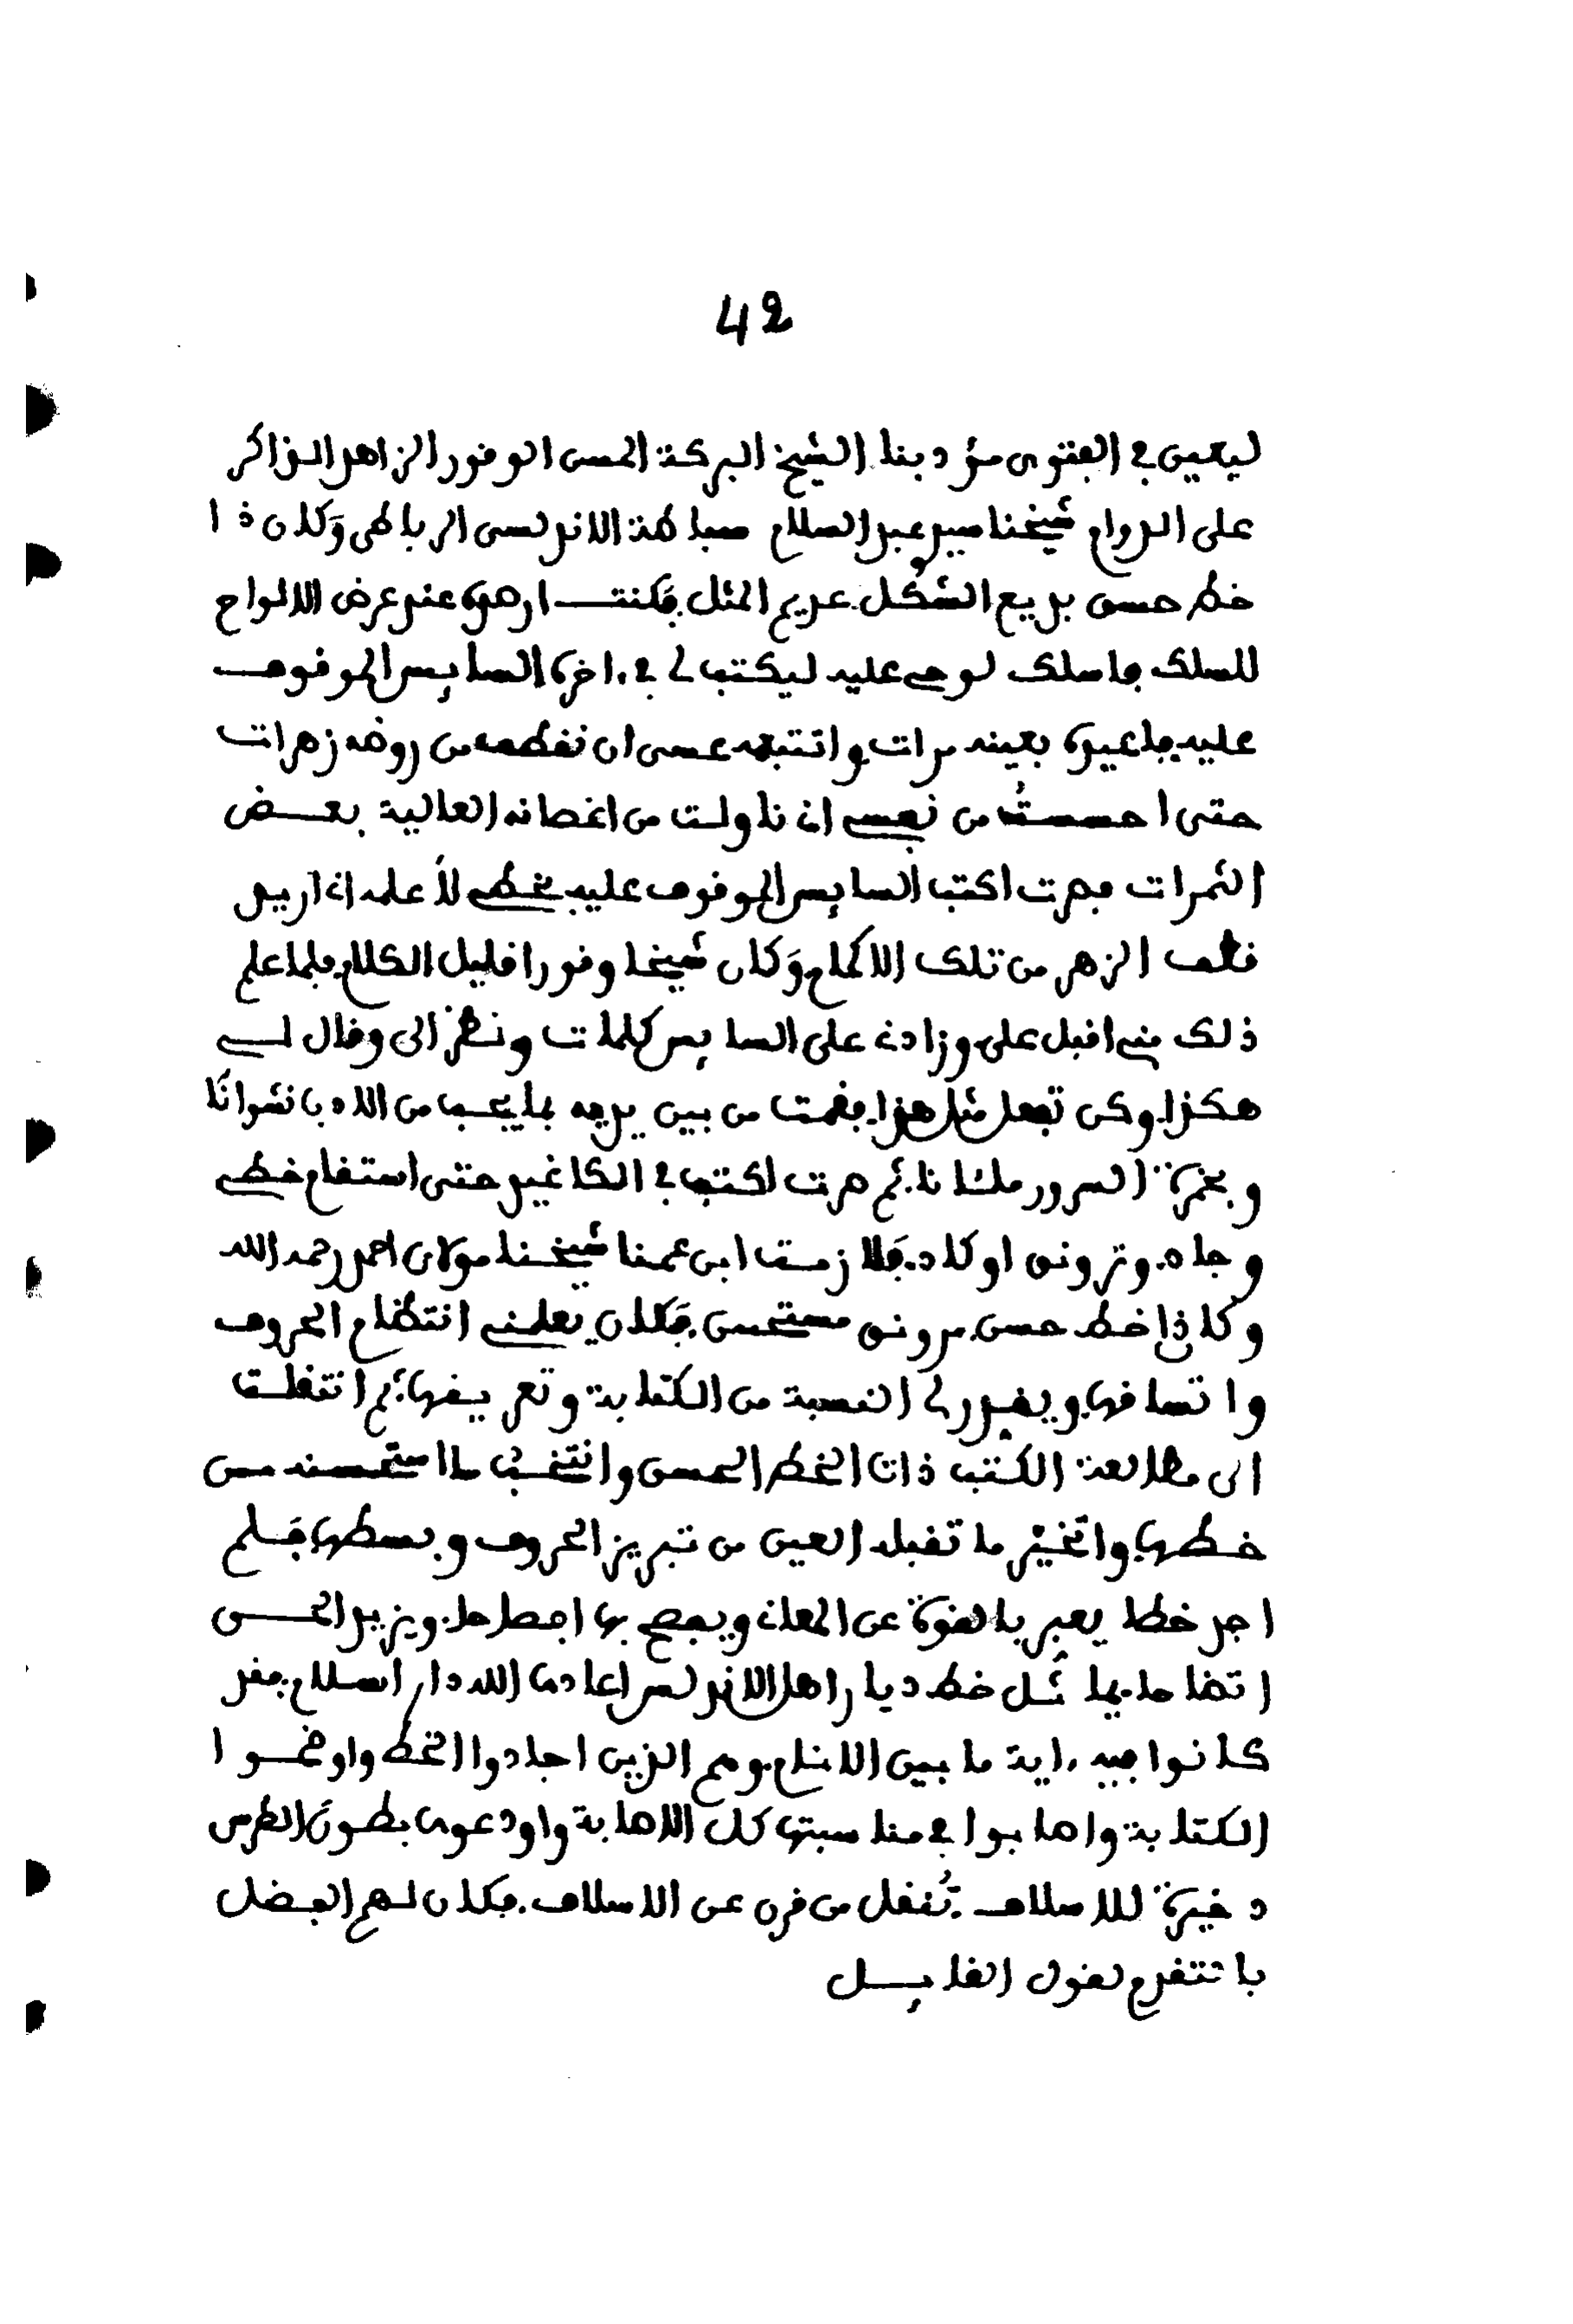 42
ليعين في الفتوى مؤدبنا الشيخ البركة المسن الوقور الزاهد الذاكر
على الدوام شيخنا سيد عبد السلام سباطة الاندلسي الرباطي وكان ذا
خط حسن بديع الشكل عديم المثل فكنت ارصده عند عرض الالواح
للسلك فاسلك لوحي عليه ليكتب لي في ءاخره السايس الموقوف
عليه فاعيده بعينه مرات واتتبعه عسى ان نقطف من روضه زهرات
حتى احسست من نفسي اني ناولت من اغصانه العالية بعض
الثمرات فصرت اكتب السايس الموقوف عليه بخطي لأعلمه اني اريد
قطف الزهر من تلك الاكمام وكان شيخا وقورا قليل الكلام فلما علم
ذلك مني اقبل علي وزادني على السايس كلمات ونظر الي وقال لي
هكذا وكن تفعل مثل هذا فقمت من بين يديه بما يجب من الادب نشوانًا
وبخمرة السرور ملئانا ثم صرت اكتب في الكاغيد حتى استقام خطي
وجاد وترونق او كاد فلازمت ابن عمنا شيخنا مولاي احمد رحمه الله
وكان ذا خط حسن ورونق مستحسن فكان يعلمني انتظام الحروف
واتساقها ويقرر لي النسبة من الكتابة وتعريفها ثم انتقلت
الى مطالعة الكتب ذات الخط الحسن وانتخب ما استحسنه من
خطها واتخير ما تقبله العين من تبريز الحروف وبسطها فلم
اجد خطا يعبر بالقوة عن المعاني ويفصح بها افصاحا ويزيد الحسن
اتضاحا يماثل خط ديار اهل الاندلس اعادها الله دار اسلام فقد
كانوا فيه ءاية ما بين الانام وهم الذين اجادوا الخط واوضحوا
الكتابة واصابوا في مناسبتها كل الاصابة واودعوه بطون الطرس
دخيرة للاسلاف تُنقل من قرن عن الاسلاف فكان لهم الفضل
بالتقدم لقول القايل